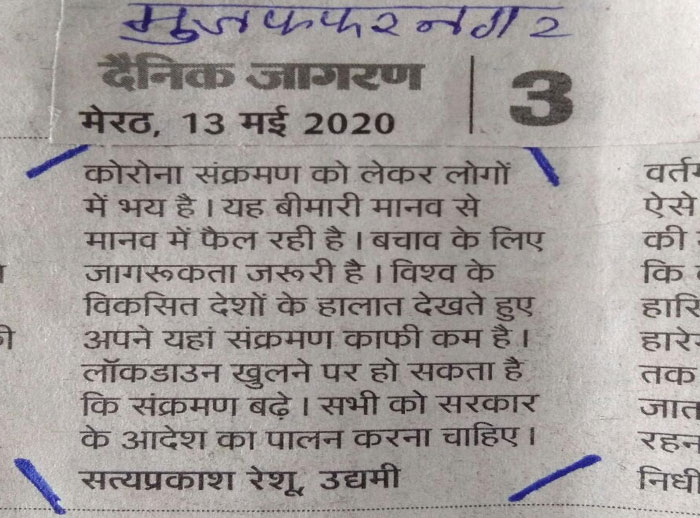 मुजफ्फरनगर
दैनिक जागरण
3
मेरठ, 13 मई 2020
कोरोना संक्रमण को लेकर लोगों
में भय है। यह बीमारी मानव से
मानव में फैल रही है। बचाव के लिए
जागरूकता जरूरी है। विश्व के
विकसित देशों के हालात देखते हुए
अपने यहां संक्रमण काफी कम है।
लॉकडाउन खुलने पर हो सकता है
कि संक्रमण बढ़े। सभी को सरकार
के आदेश का पालन करना चाहिए।
सत्यप्रकाश रेशू, उद्यमी
ऐसे
की
कि
तक